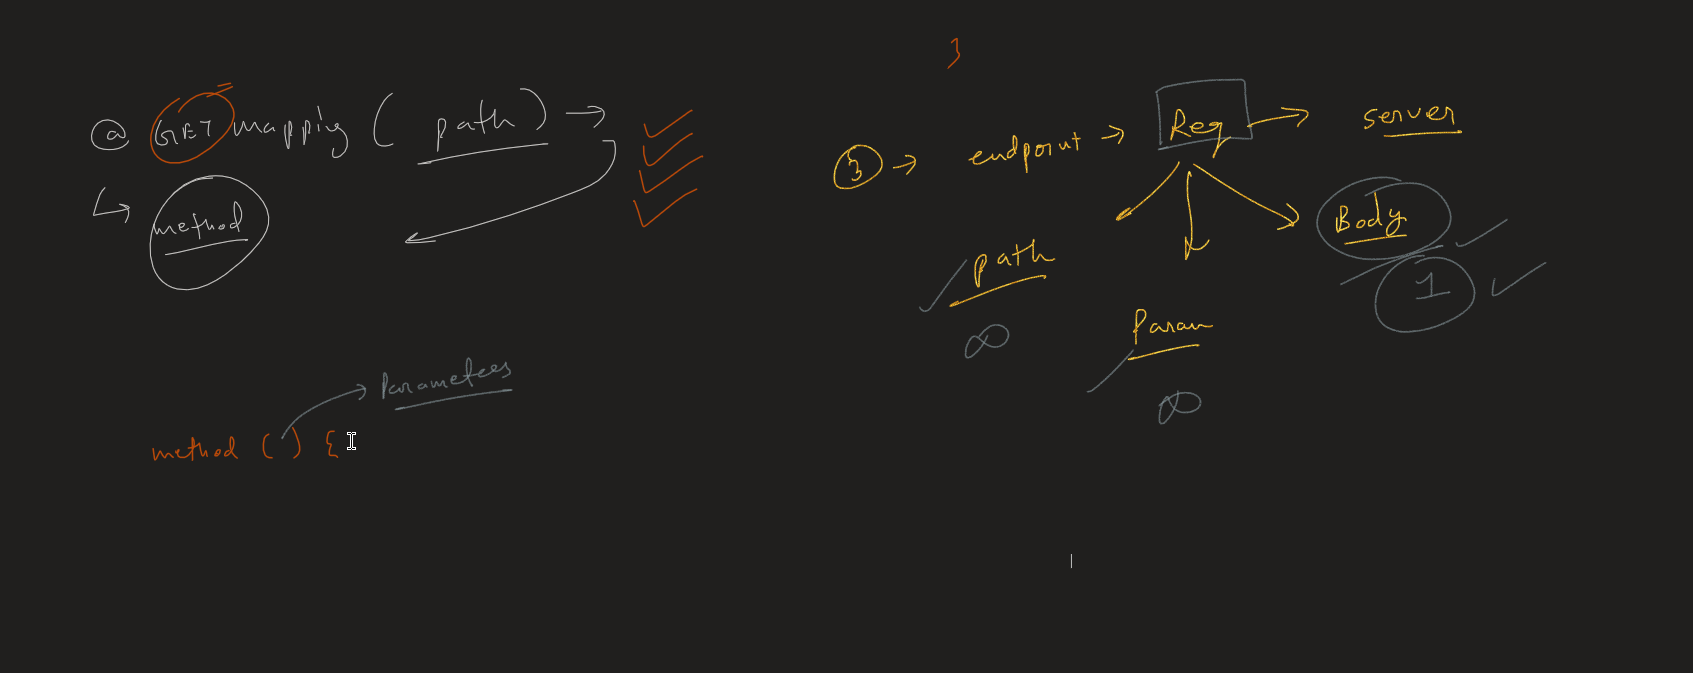 @ GET mapping ( path ) →
↳ method
Parameters
method ( ) {
}
3 → endpoint → Req → server
path
Param
Body
∞
∞
1